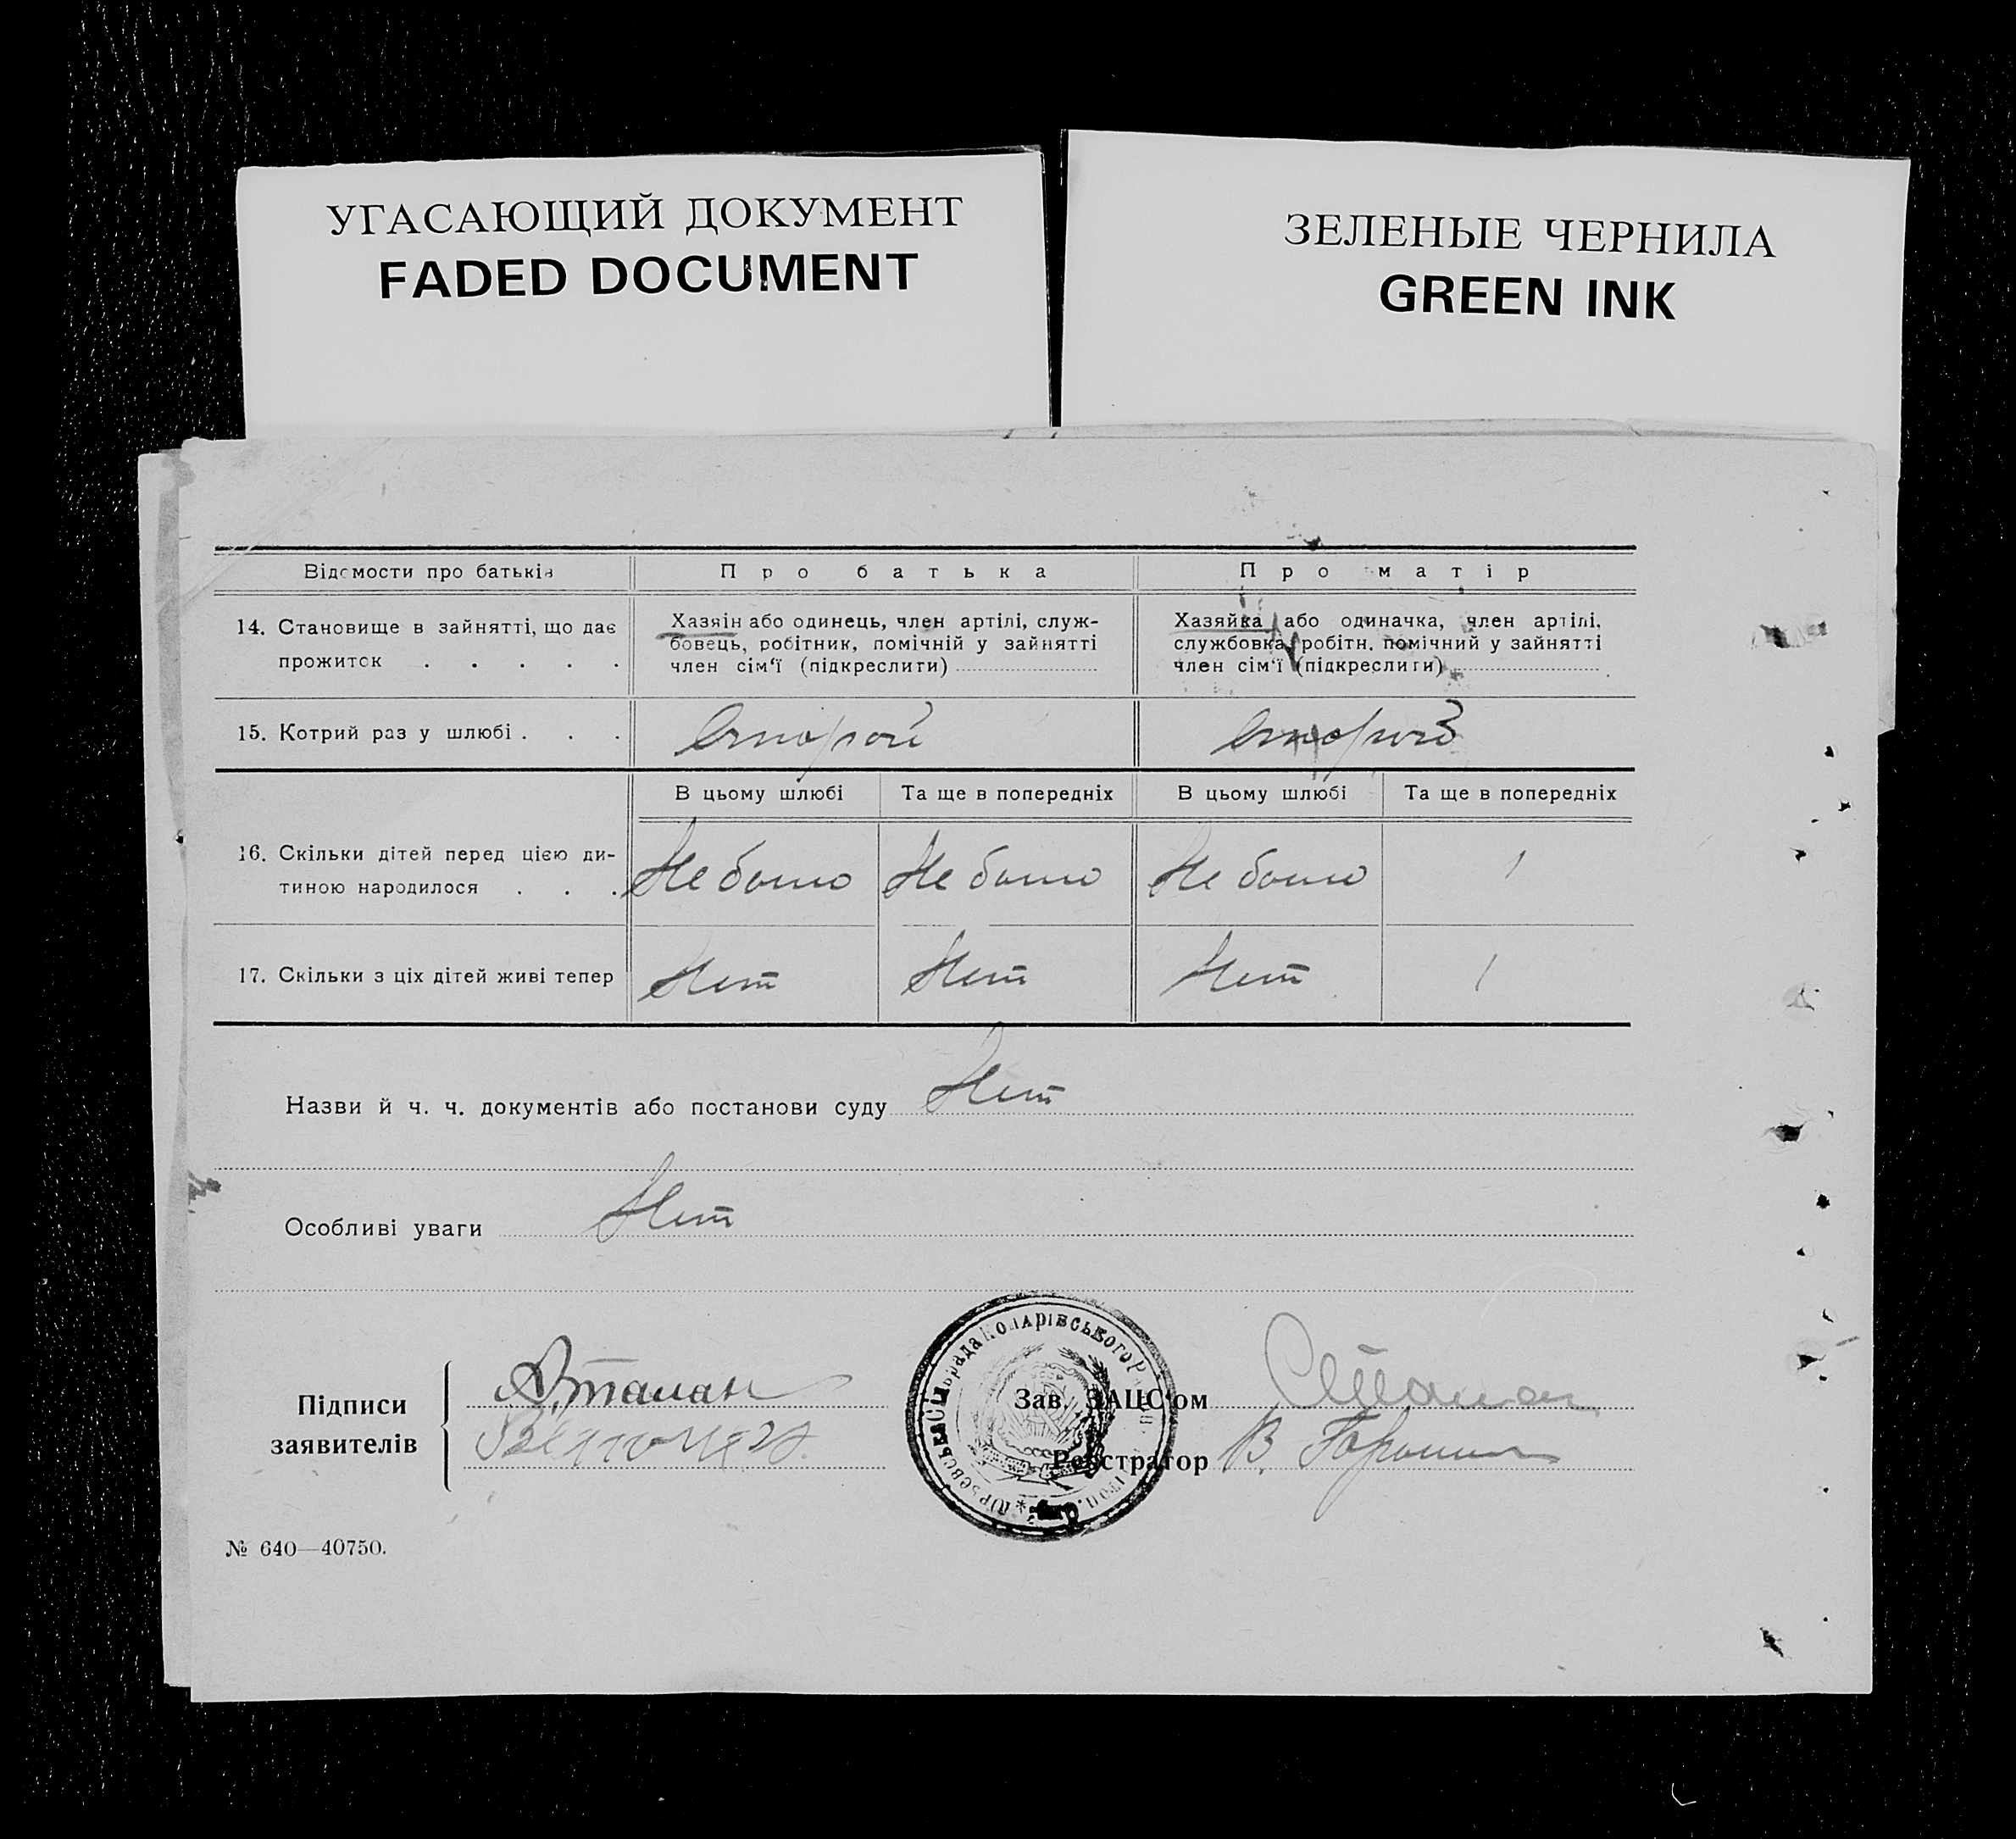 УГАСАЮЩИЙ ДОКУМЕНТ
FADED DOCUMENT
ЗЕЛЕНЫЕ ЧЕРНИЛА
GREEN INK
Відомости про батьків
Про батька
Про матір
14. Становище в зайнятті, що дає
прожиток . . . . .
Хазяін або одинець, член артілі, служ-
бовець, робітник, помічній у зайнятті
член сім'ї (підкреслити)
Хазяйка або одиначка, член артілі,
службовка, робітн. помічний у зайнятті
член сім'ї (підкреслити)
15. Котрий раз у шлюбі . . .
Второй
Второй
В цьому шлюбі
Та ще в попередніх
В цьому шлюбі
Та ще в попередніх
16. Скільки дітей перед цією ди-
тиною народилося . . .
Не было
Не было
Не было
1
17. Скільки з ціх дітей живі тепер
Нет
Нет
Нет
1
Назви й ч. ч. документів або постанови суду Нет
Особливі уваги Нет
Підписи
заявителів
Зав. ЗАЦС'ом
Реєстратор В.
№ 640—40750.